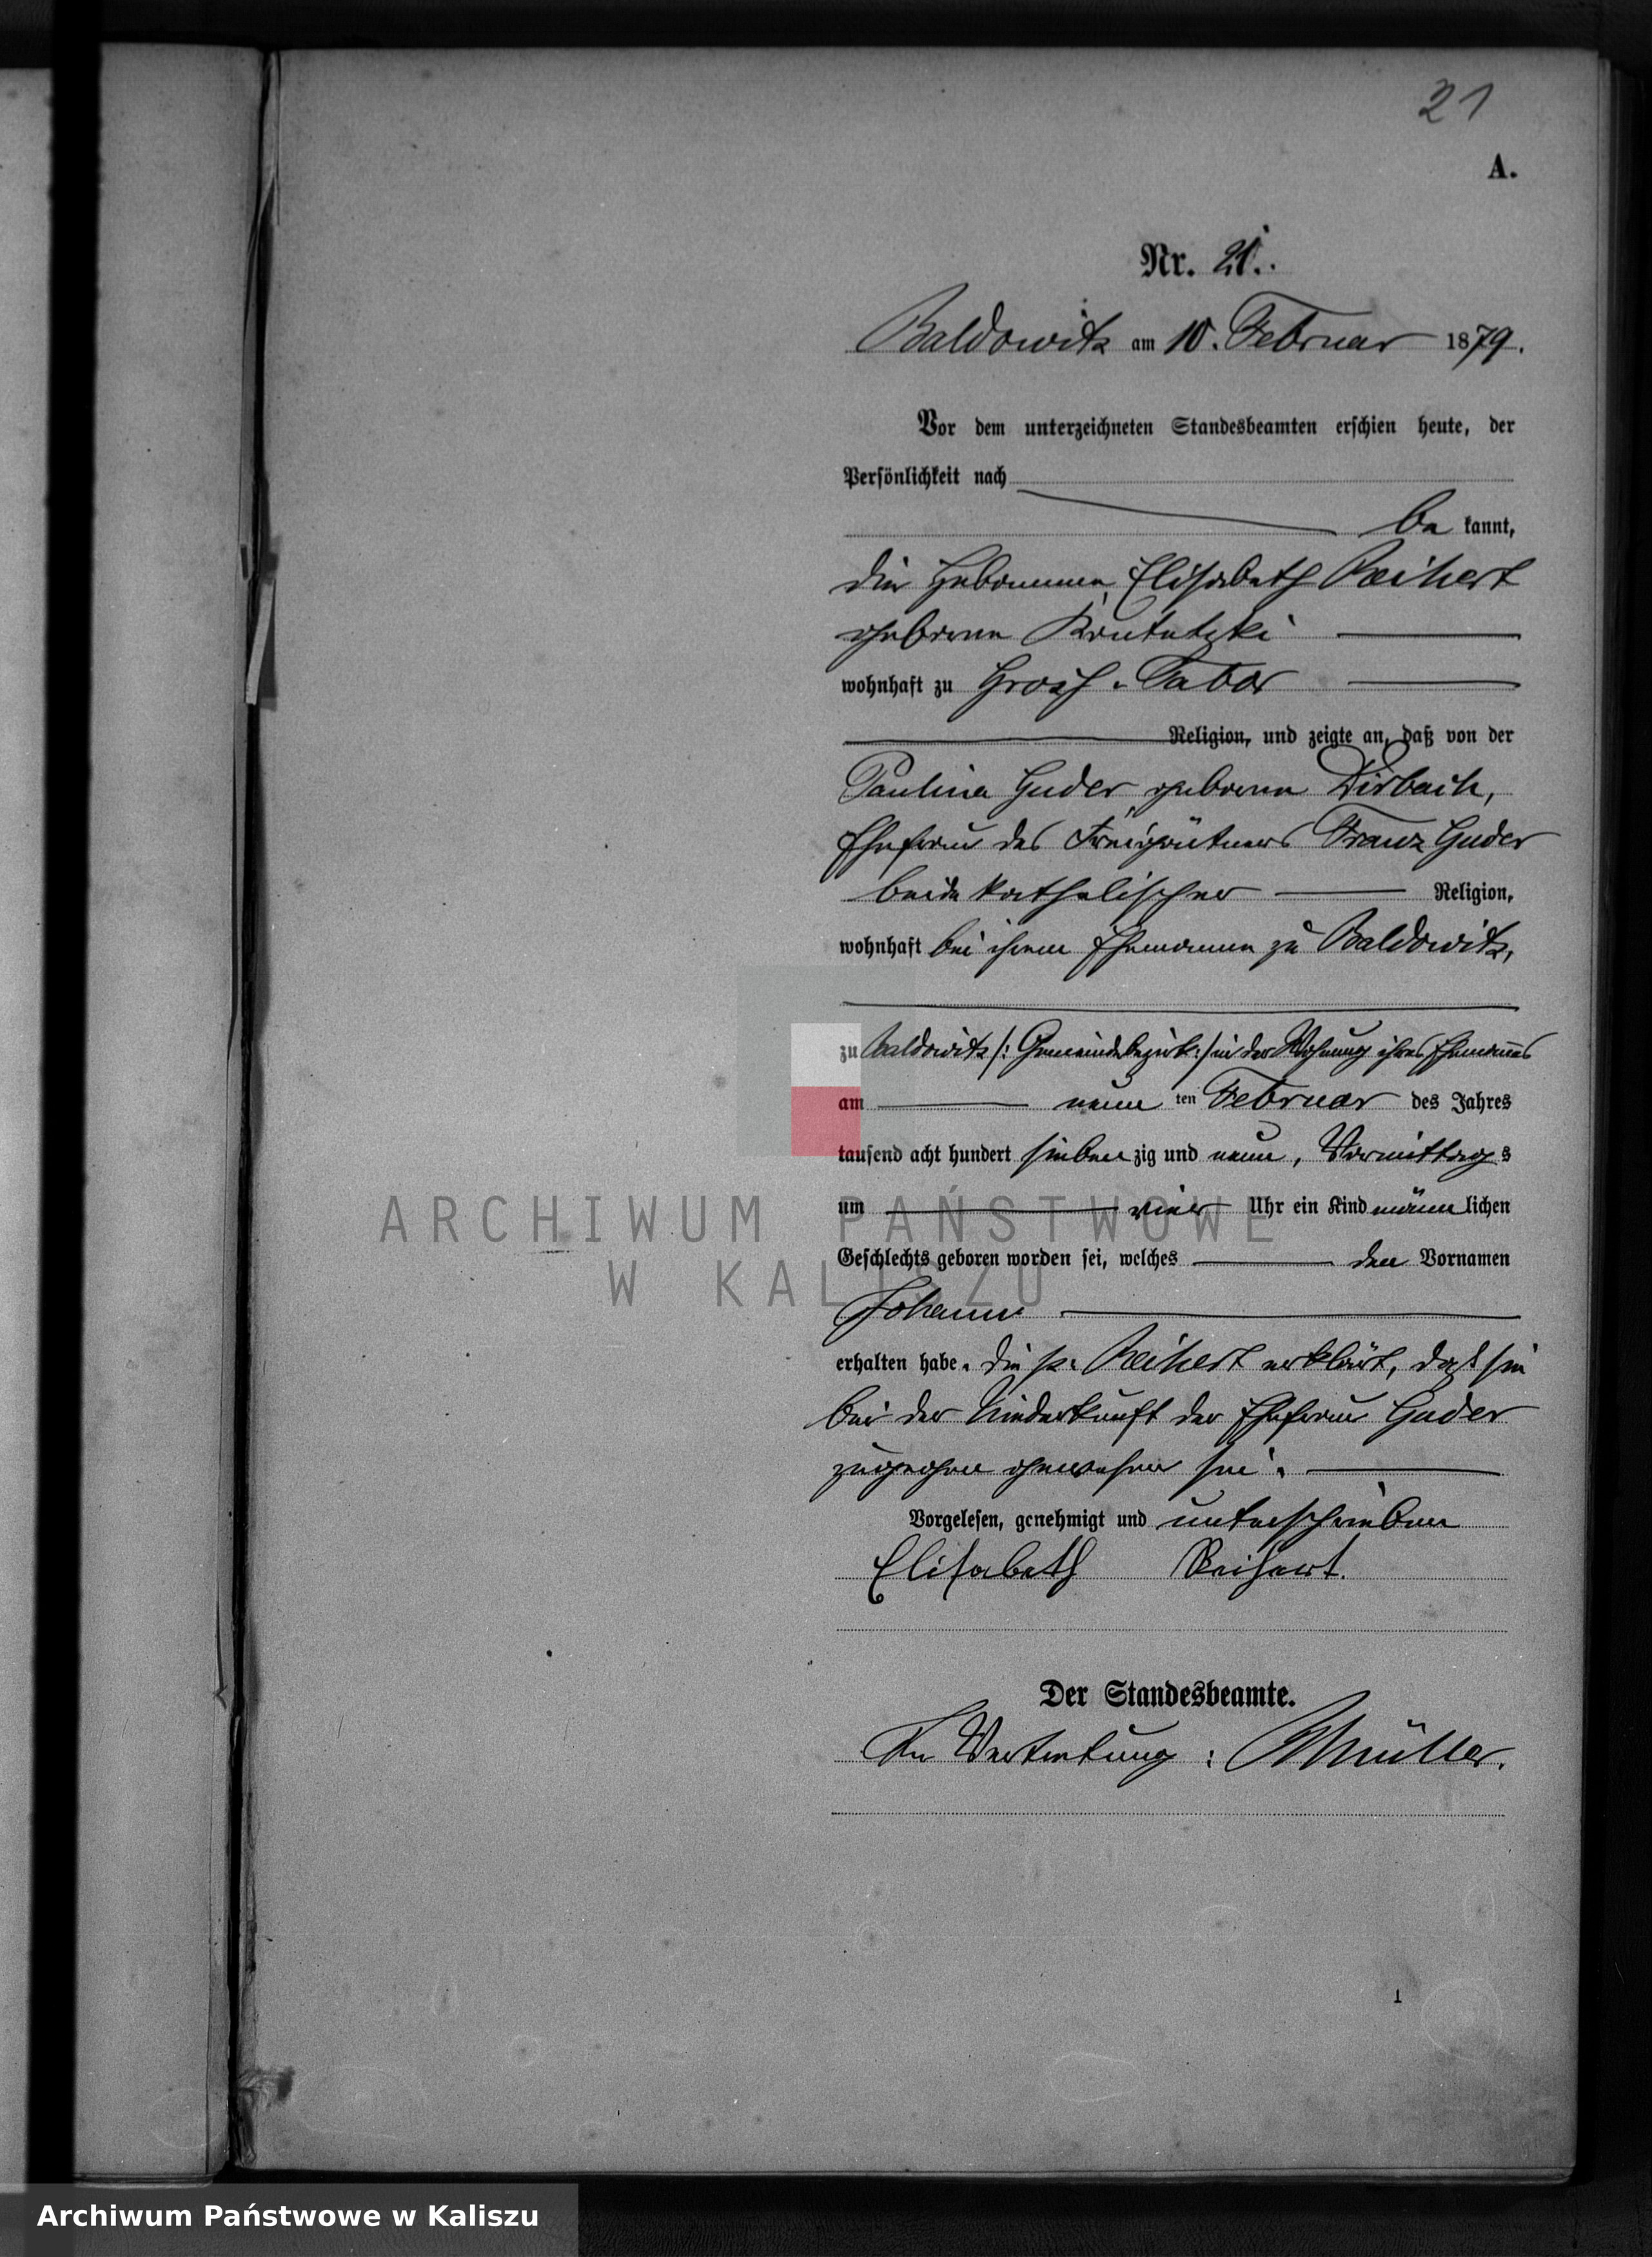 21
A.
Nr. 21.
Baldowitz am 10. Februar 1879.
Vor dem unterzeichneten Standesbeamten erschien heute, der
Persönlichkeit nach
be kannt,
die Hebamme, Elisabeth Reihert
geborene
wohnhaft zu Gross-Tabor
Religion, und zeigte an, daß von der
Paulina Guder, geborene Dirbach,
Ehefrau des Freigärtners Franz Guder
beide katholischer Religion,
wohnhaft bei ihrem Ehemanne zu Baldowitz,
zu Baldowitz /: Gemeindebezirk :/ in der Wohnung ihres Ehemannes
am neun ten Februar des Jahres
tausend acht hundert sieben zig und neun, Vormittag s
um vier Uhr ein Kind männ lichen
Geschlechts geboren worden sei, welches den Vornamen
Johann
erhalten habe. Die p. Reihert erklärt, daß sie
bei der Niederkunft der Ehefrau Guder
zugegen gewesen sei.
Vorgelesen, genehmigt und unterschrieben
Elisabeth Reihert.
Der Standesbeamte.
In Vertretung: Müller.
1
ARCHIWUM PAŃSTWOWE
W KALISZU
Archiwum Państwowe w Kaliszu